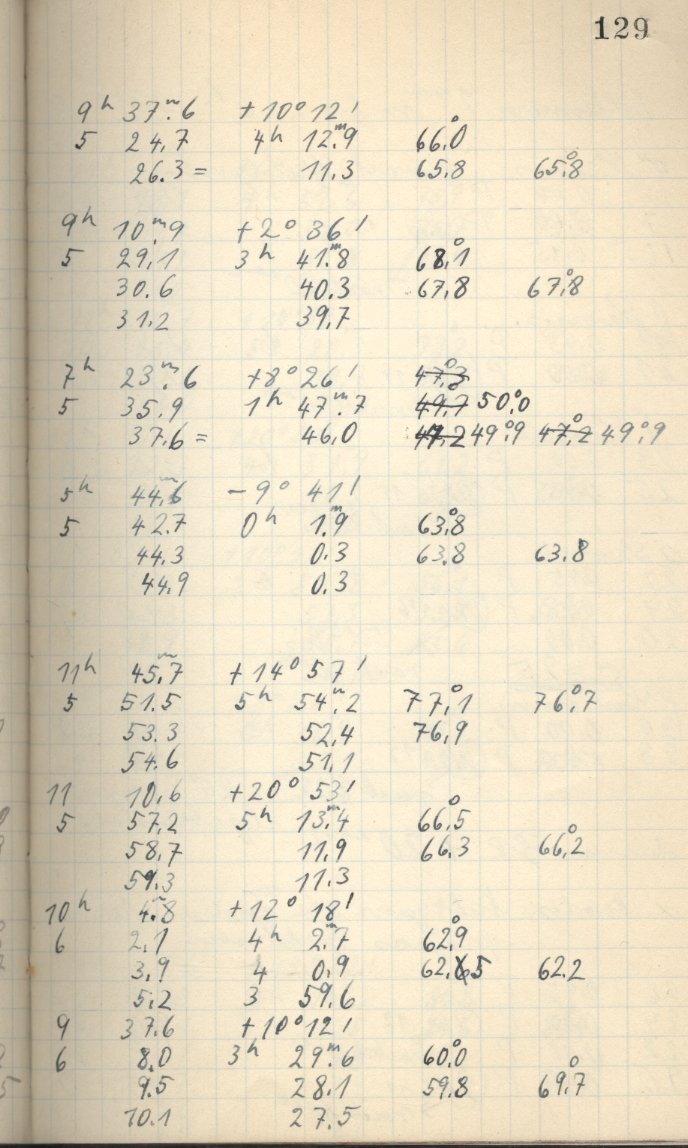 129
9h 37m.6 +10° 12'
5 24.7 4h 12m.9 66°.0
26.3 = 11.3 65.8 65°.8
9h 10m.9 +2° 36'
5 29.1 3h 41m.8 68°.1
30.6 40.3 67.8 67°.8
31.2 39.7
7h 23m.6 +8° 26' 47°.3
5 35.9 1h 47m.7 49°.7 50°.0
37.6 = 46.0 47.2 49°.9 47°.2 49°.9
5h 44m.6 -9° 41'
5 42.7 0h 1m.9 63°.8
44.3 0.3 63.8 63.8
44.9 0.3
11h 45m.7 +14° 57'
5 51.5 5h 54m.2 77°.1 76°.7
53.3 52.4 76.9
54.6 51.1
11 10.6 +20° 53'
5 57.2 5h 13m.4 66°.5
58.7 11.9 66.3 66°.2
59.3 11.3
10h 4m.8 +12° 18'
6 2.1 4h 2m.7 62°.9
3.9 4 0.9 62.5 62.2
5.2 3 59.6
9 37.6 +10° 12'
6 8.0 3h 29m.6 60°.0
9.5 28.1 59.8 69°.7
10.1 27.5